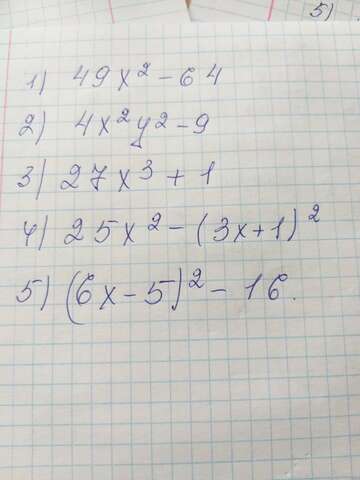 5)
1) 49x² - 64
2) 4x²y² - 9
3) 27x³ + 1
4) 25x² - (3x+1)²
5) (6x - 5)² - 16.